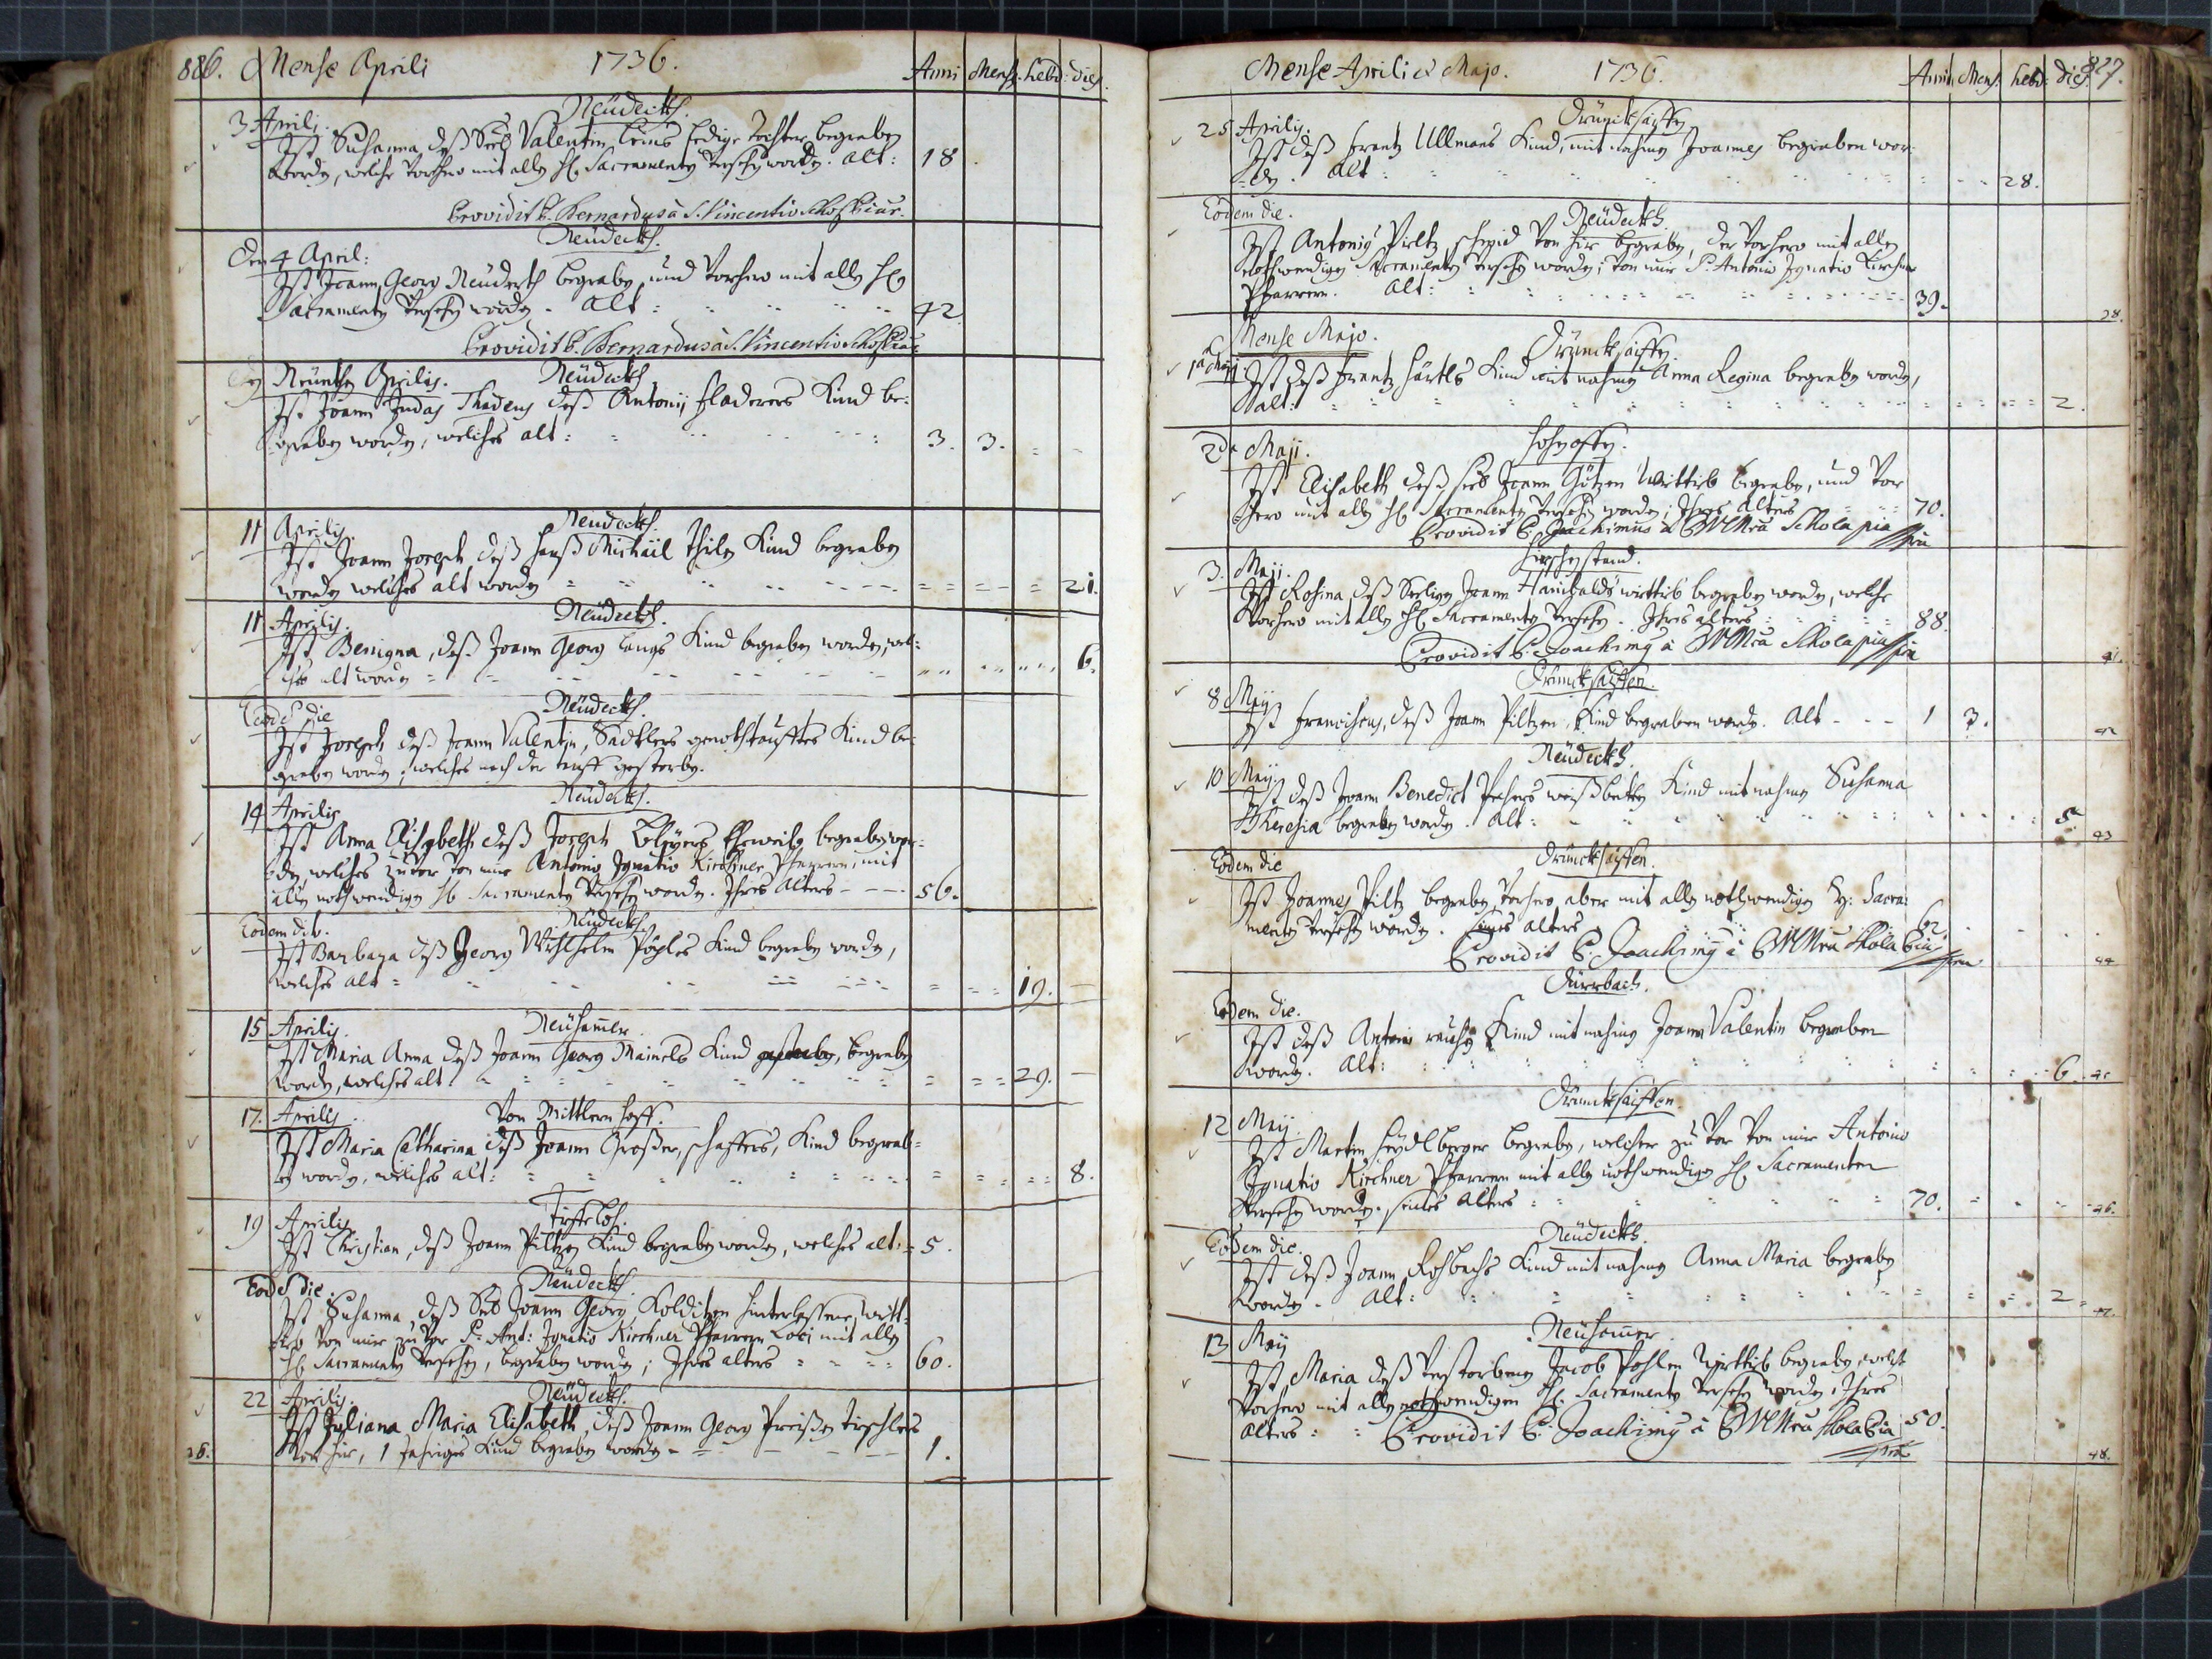 826. Mense Aprili 1736. Anni Mens: hebd: dies.
3 Aprilis. Neüdeckh.
Ist Susanna, deß Seel Valentin ledige Tochter begraben
worden, welche vorhero mit allen hl: Sacramenten versehen worden. Alt: 18.
Providit P. Bernardus à S. Vincentio Schol: Piar.
Den 4 April: Neüdeckh.
Ist Joann Georg Neüderth begraben und vorhero mit allen hl:
Sacramenten versehen worden. Alt: 42
Providit P. Bernardus à S. Vincentio Schol: Piar.
Den Neünten Aprilis. Neüdeckh
Ist Joann Judas Thadeus deß Antonii Fladerers Kind be-
graben worden, welches alt: 3. 3.
11 Aprilis. Neüdeckh.
Ist Joann Joseph, deß Hanß Michäil Thilen Kind begraben
worden welches alt worden 21.
11 Aprilis. Neüdeckh.
Ist Benigna, deß Joann Georg Langs Kind begraben worden, wel-
ches alt worden 6.
Eod: die Neüdeckh.
Ist Joseph deß Joann Valentin, Sadtlers genothtaufftes Kind be-
graben worden, welches nach der tauff gestorben.
14 Aprilis Neüdeckh.
Ist Anna Elisabeth deß Joseph Eheweib begraben wor-
den welches zuvor von mir Antonio Ignatio Kirchner Pfarrern, mit
allen nothwendigen hl: Sacramenten versehen worden. Ihres Alters 56.
Eodem die. Neüdeckh.
Ist Barbara deß Georg Wihlhelm Pöchles Kind begraben worden,
welches alt 19.
15 Aprilis. Neühamer.
Ist Maria Anna deß Joann Georg Mainels Kind gestorben, begraben
worden, welches alt 29.
17. Aprilis Von Mittlern Hoff.
Ist Maria Catharina deß Joann Großer, schaffers, Kind begrab-
en worden, welches alt: 8.
19 Aprilis
Ist Christian, deß Joann Piltzen Kind begraben worden, welches alt. 5.
Eod: die. Neüdeckh.
Ist Susanna, deß Seel Joann Georg Kolditzen hinterlassene witt-
tib von mir zuvor P: Ant: Ignatio Kirchner Pfarrern Loci mit allen
hl: Sacramenten versehen, begraben worden; Ihres alters 60.
22 Aprilis. Neüdeckh.
Ist Juliana Maria Elisabeth, deß Joann Georg Preißen tischlers
von hier, 1 Jahriges Kind begraben worden 1.
26.
Mense Aprili et Majo. 1736. Anni Mens. hebd: dies. 827.
25 Aprilis. Drünckhseiffen
Ist deß Frantz Ullmans Kind, mit nahmen Joannes begraben wor-
den. Alt 28.
Eodem die. Neüdeckh.
Ist Antonius Pieltz schmid von hier begraben, der vorhero mit allen
nothwendigen Sacramenten versehen worden, von mir P: Antonio Ignatio Kirchner
Pfarrern. Alt: 39.
28.
Mense Majo. Drünckhseiffen.
1ma Maji Ist deß Frantz Härtls Kind mit nahmen Anna Regina begraben worden,
alt: 2.
2da Maji. Hohenoffen.
Ist Elisabeth deß seel Joann Götzen Wittib begraben, und vor-
hero mit allen hl: Sacramenten versehen worden; Ihres Alters 70.
Providit P. Joachimus à Schola pia
3. Maji. Hirschenstand.
Ist Rosina deß Seeligen Joann Hanibalds wittib begraben worden, welche
vorhero mit allen hl: Sacramenten versehen. Ihres alters 88.
Providit P. Joachimus à Schola pia
41.
8 May Drünckhseiffen.
Ist Franciscus, deß Joann Piltzen Kind begraben worden. Alt 1 3.
42
10 May. Neüdeckh.
Ist deß Joann Benedict Pechers weißbecken Kind mit nahmen Susanna
Theresia begraben worden. Alt: 5.
43
Eodem die Drünckhseiffen.
Ist Joannes Piltz begraben, vorhero aber mit allen nothwendigen H: Sacra-
menten versehen worden. Seines alters 62.
Providit P. Joachimus à Schola Pia
44
Dürrbach.
Eodem die.
Ist deß Antoni Kind mit nahmen Joann Valentin begraben
worden. Alt: 6. 45
12 May. Drünckhseiffen.
Ist Martin Heydlberger begraben, welcher zu vor von mir Antonio
Ignatio Kirchner Pfarrern mit allen nothwendigen hl: Sacramenten
versehen worden. seines Alters 70. 46.
Eodem die. Neüdeckh.
Ist deß Joann Roßbachs Kind mit nahmen Anna Maria begraben
worden. Alt: 2 47.
13 May Neühamer.
Ist Maria deß verstorbenen Jacob Pohlen Wittib begraben, welche
vorhero mit allen nothwendigen hl: Sacramenten versehen worden. Ihres
Alters Providit P. Joachimus à Schola Pia 50.
48.